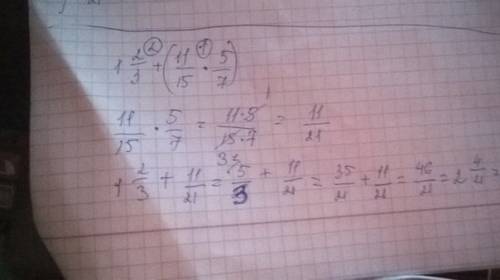 1 2/3 + (11/15 · 5/7)
11/15 · 5/7 = 11·5/15·7 = 11/21
1 2/3 + 11/21 = 5/3 + 11/21 = 35/21 + 11/21 = 46/21 = 2 4/21